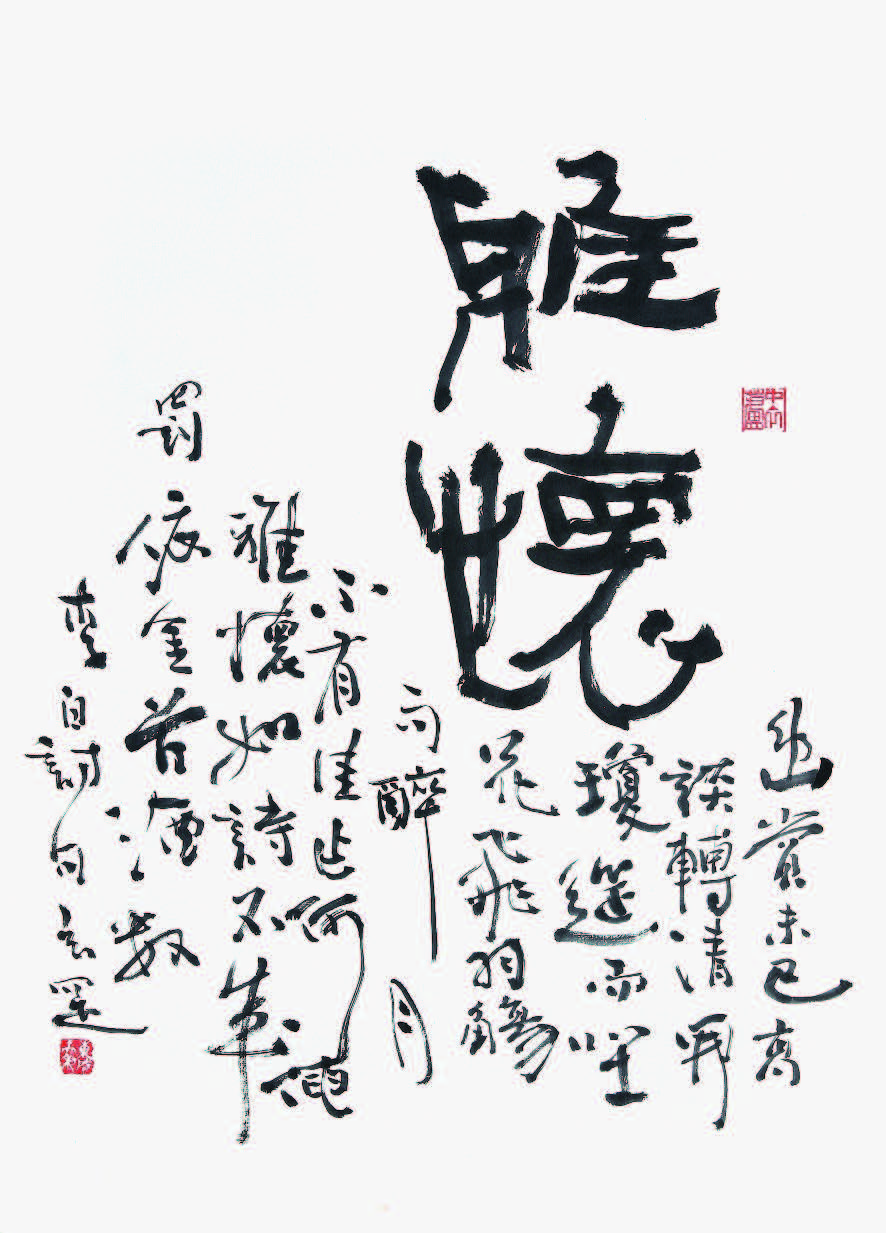 雅懷
幽賞未已高
談轉清開
瓊筵而坐
花飛羽觴
而醉月
不有佳作何伸
雅懷如詩不成
罰依金谷酒數
李白詩句